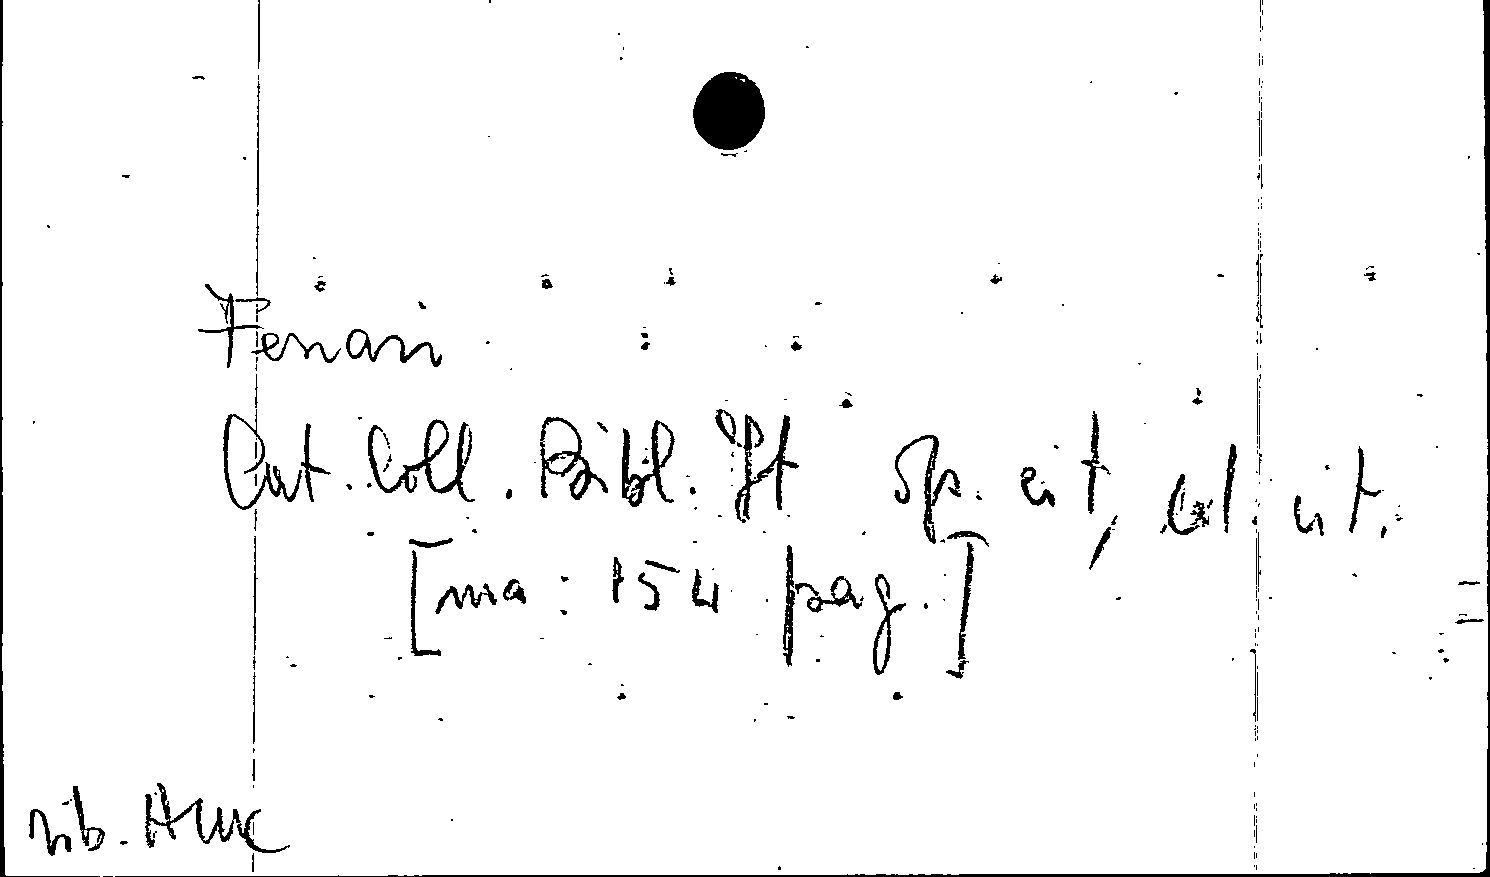 Ferrari
Cat. Coll. Bibl. It Sp. cit, ed. cit.
[ma: 154 pag.]
bib.